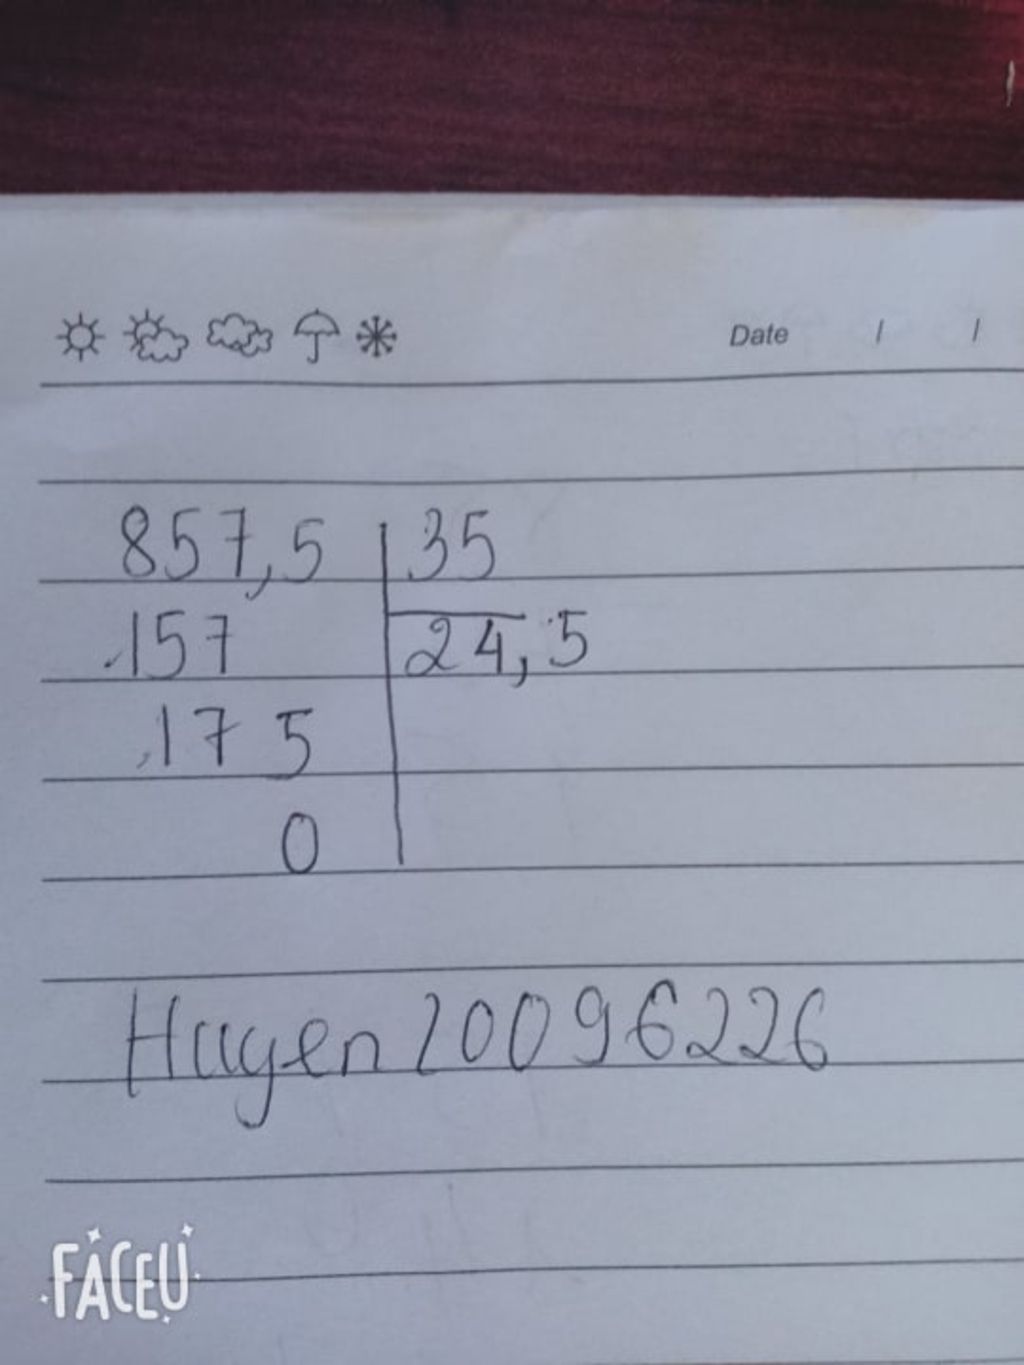 Date / /
857,5 35
157 24,5
175
0
Huyen20096226
FACEU